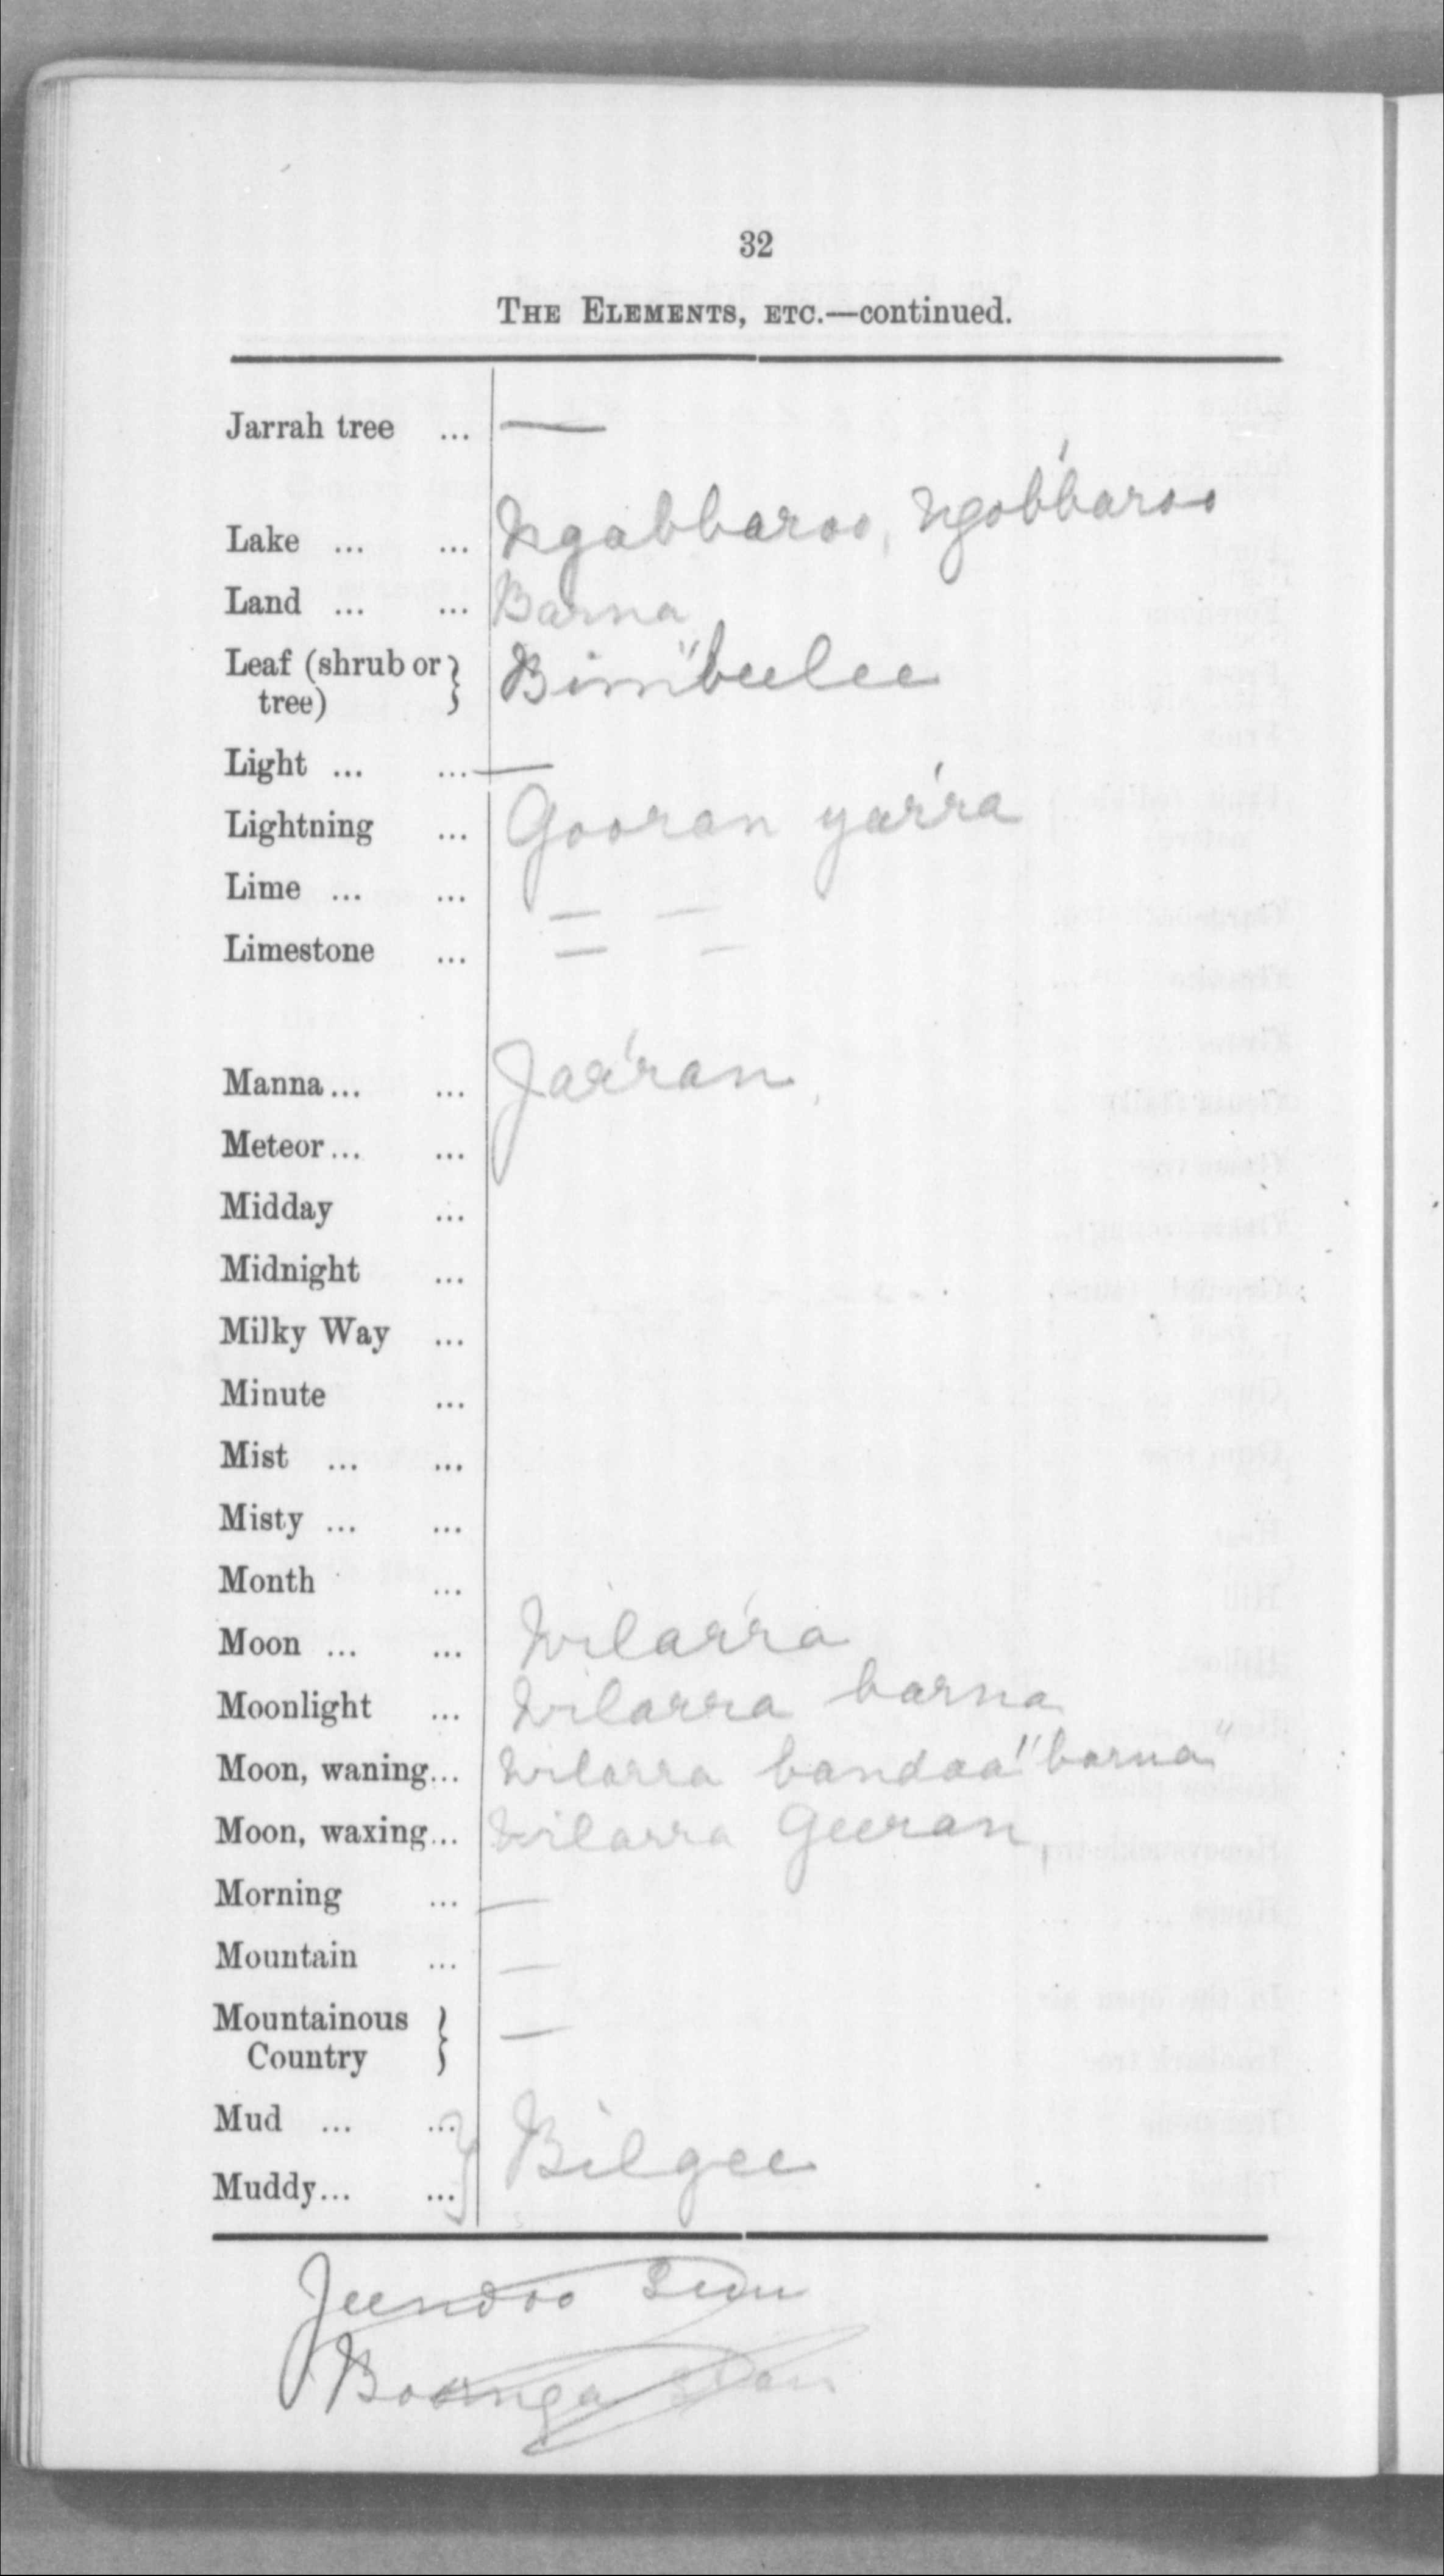 32
THE ELEMENTS, ETC.—continued.
Jarrah tree ... —
Lake ... ... Ngabbaroo, Ngob'baroo
Land ... ... Barna
Leaf (shrub or tree) } Bim"beelee
Light ... ... —
Lightning ... Gooran yar'ra
Lime ... ... — —
Limestone ... — —
Manna ... ... Jar'ran
Meteor ... ...
Midday ...
Midnight ...
Milky Way ...
Minute ...
Mist ... ...
Misty ... ...
Month ...
Moon ... ... Wilar'ra
Moonlight ... Wilarra barna
Moon, waning... Wilarra bandaa"barna
Moon, waxing... Wilarra Geeran
Morning ... —
Mountain ... —
Mountainous Country } —
Mud ... ... } Bilgee
Muddy... ...
Jeendoo Sun
Boonga